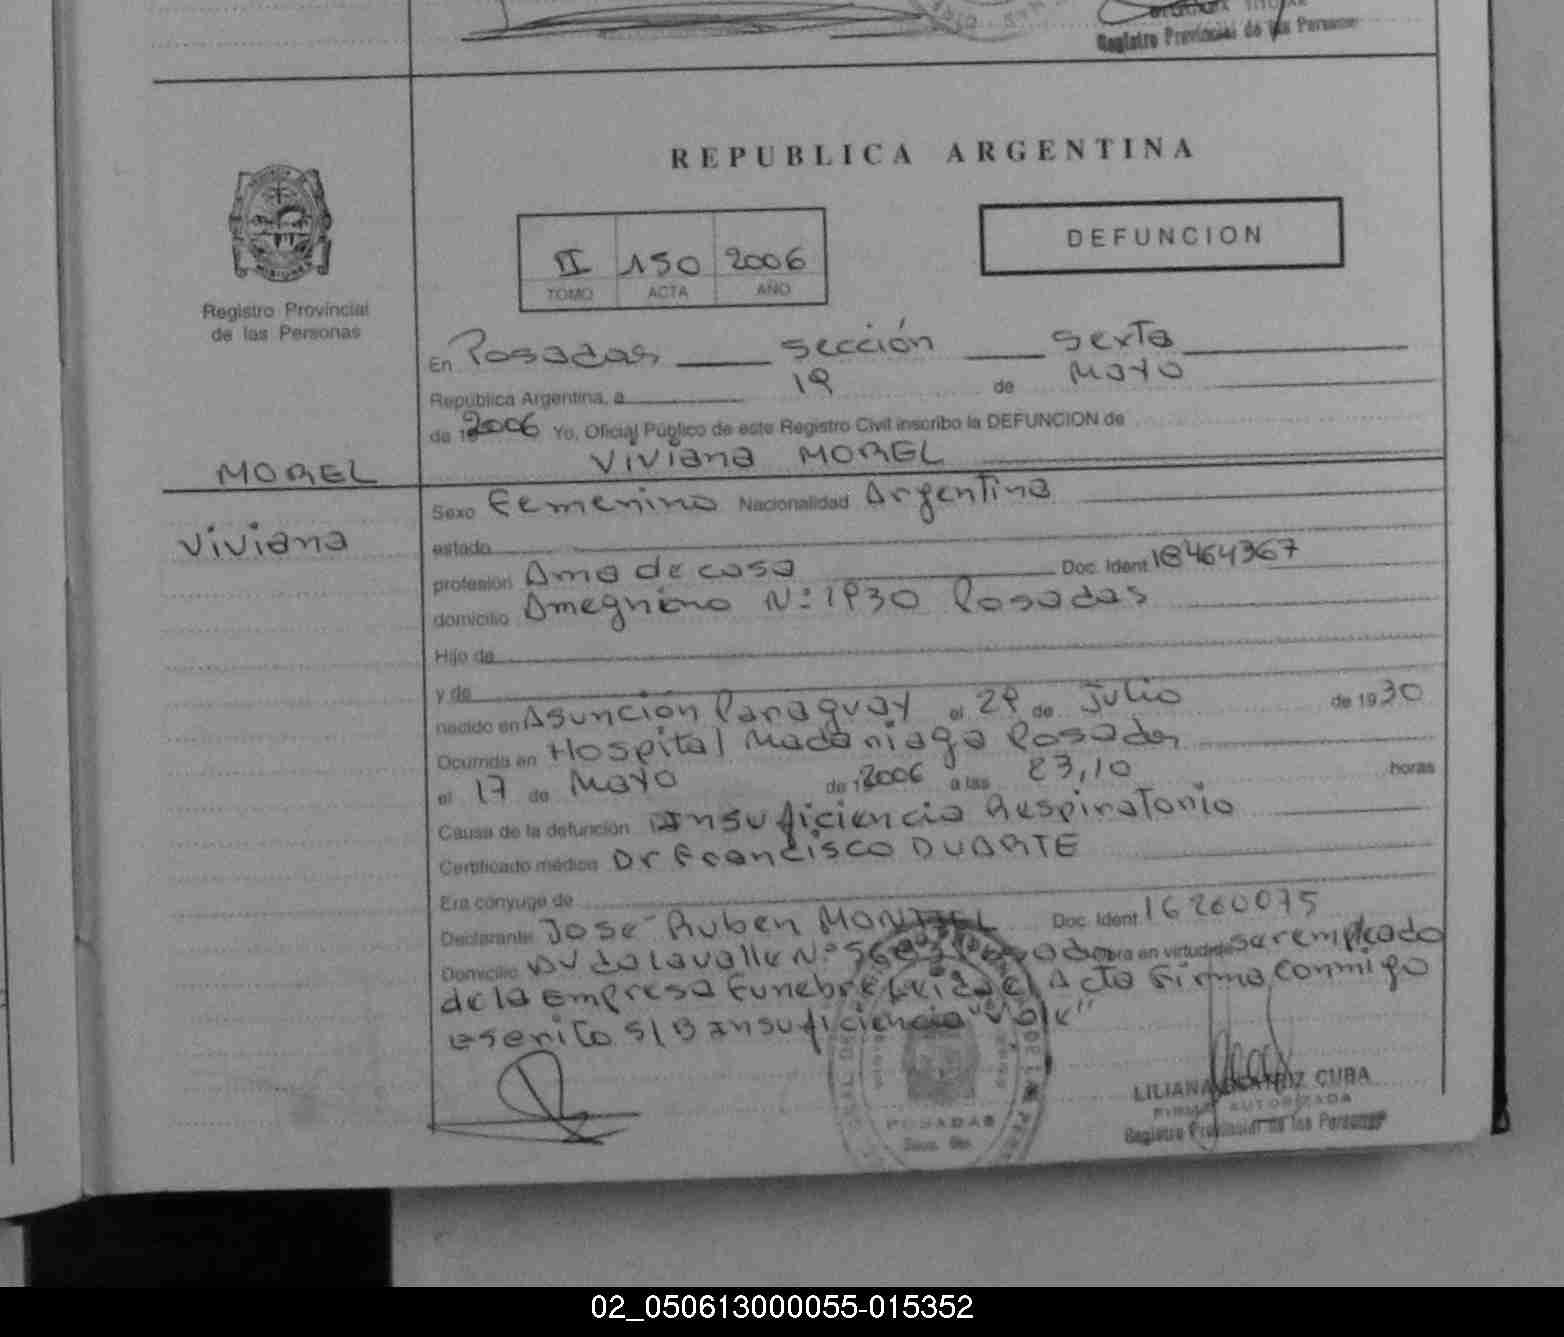 Registro Provincial de las Personas
REPUBLICA ARGENTINA
DEFUNCION
II 150 2006
TOMO ACTA AÑO
Registro Provincial
de las Personas
En Posadas sección sexta
República Argentina, a 19 de Mayo
de 2006 Yo, Oficial Público de este Registro Civil inscribo la DEFUNCION de
Viviana MOREL
MOREL
Viviana
Sexo Femenino Nacionalidad Argentina
estado
profesión Ama de casa Doc. Ident 18464367
domicilio Ameghino N: 1930 Posadas
Hijo de
y de
nacido en Asunción Paraguay el 29 de Julio de 1930
Ocurrida en Hospital Madariaga Posadas
el 17 de Mayo de 2006 a las 23,10 horas
Causa de la defunción Insuficiencia Respiratorio
Certificado médico Dr Francisco DUARTE
Era cónyuge de
Declarante José Ruben MONTIEL Doc. Ident 16260075
Domicilio AV de Lavalle Nº obra en virtud de ser empleado
de la Empresa Funebre Acta Firma conmigo
escrito S/B Insuficiencia "Vale"
POSADAS
LILIANA BEATRIZ CUBA
FIRMA AUTORIZADA
Registro Provincial de las Personas
02_050613000055-015352